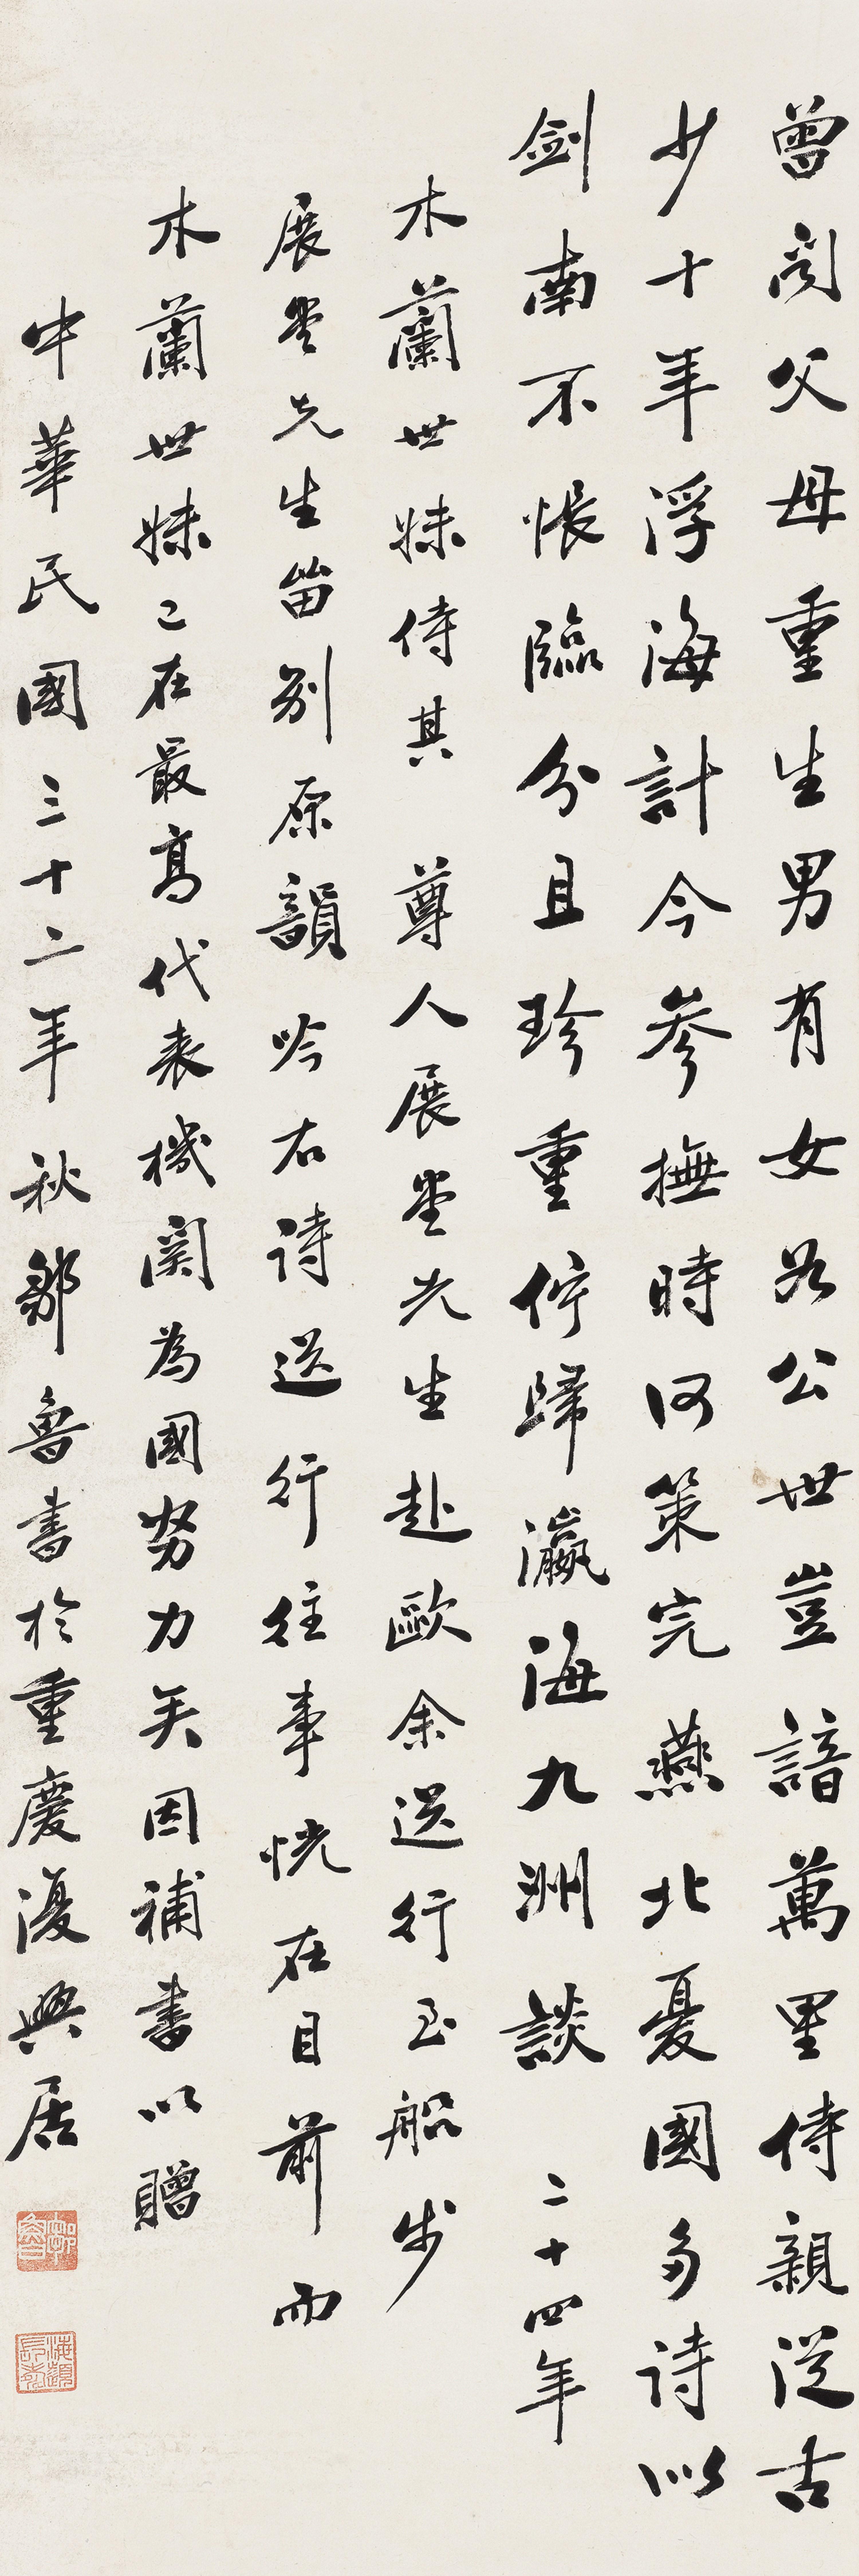 曾聞父母重生男有女如公世豈諳萬里侍親從古
少十年浮海計今參撫時何策完燕北憂國多詩似
劍南不悵臨分且珍重佇歸瀛海九洲談 二十四年
木蘭世妹侍其 尊人展堂先生赴歐余送行至船步
展堂先生留別原韻吟右詩送行往事恍在目前而
木蘭世妹已在最高代表機關為國努力矣因補書以贈
中華民國三十二年秋鄒魯書於重慶復興居
鄒魯